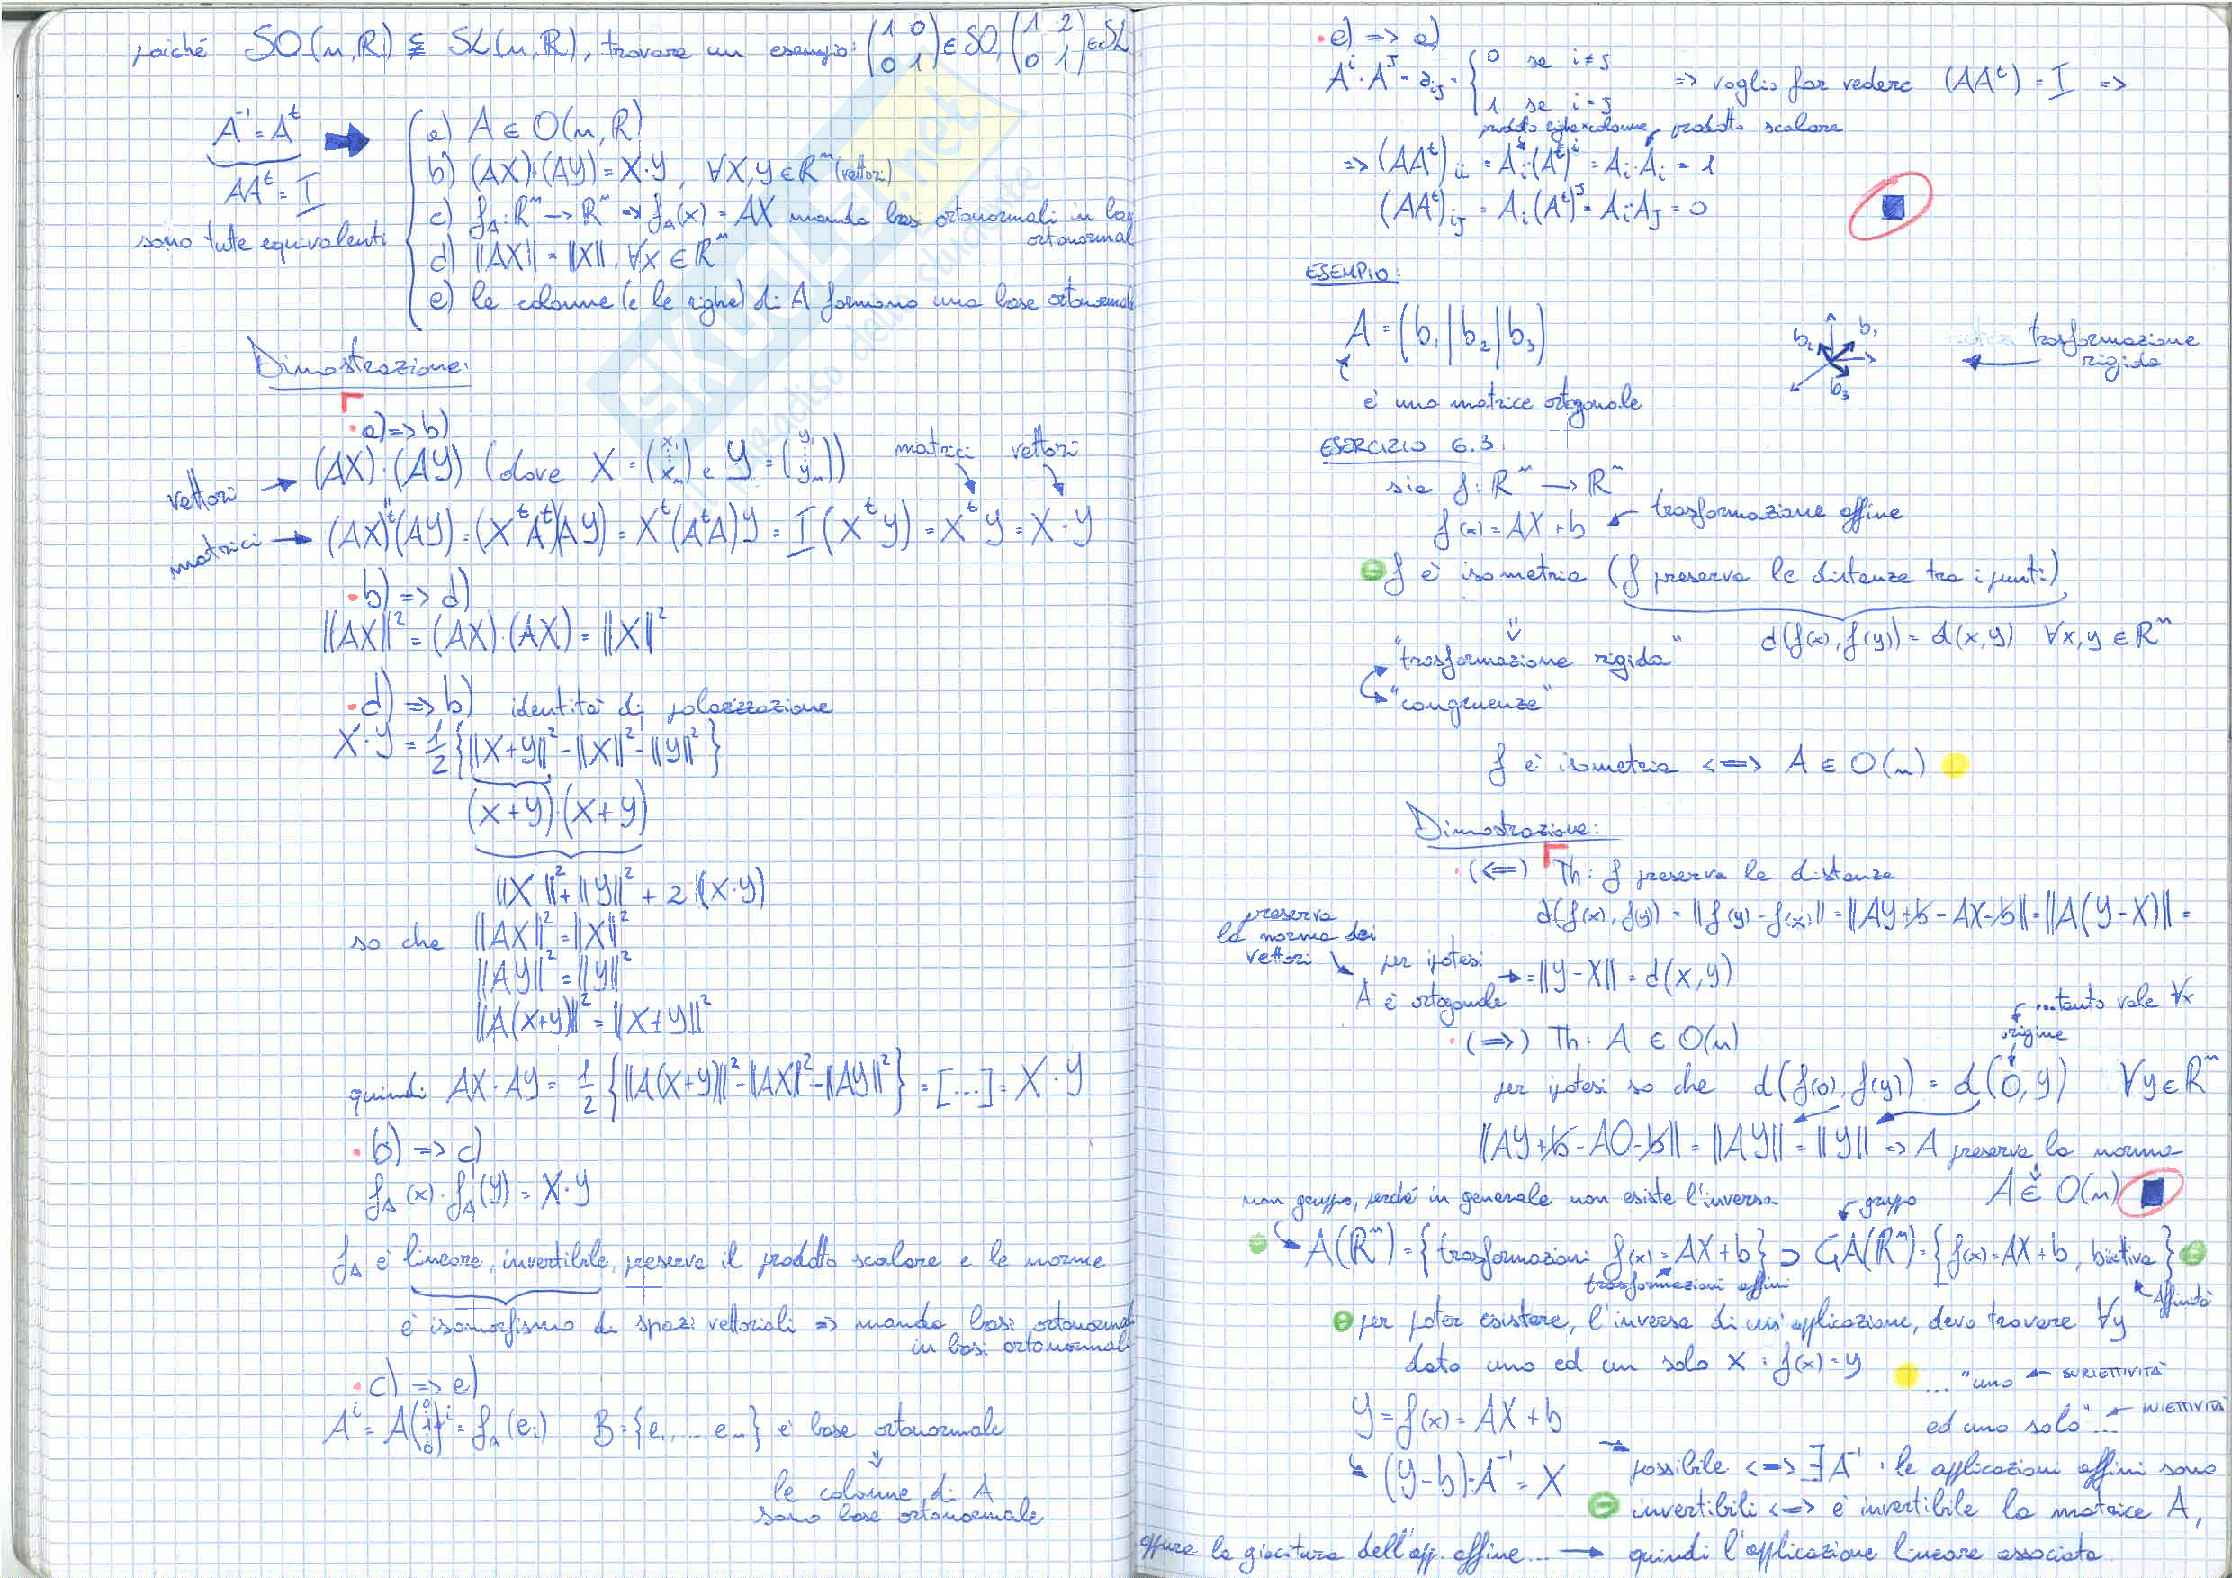 poiché SO(n,ℝ) ⊊ SL(n,ℝ), trovare un esempio: (1 0 / 0 1) ∈ SO, (1 2 / 0 1) ∈ SL
A⁻¹ = Aᵗ
AAᵗ = I
sono tutte equivalenti
a) A ∈ O(n,ℝ)
b) (AX)·(AY) = X·Y, ∀X,Y ∈ ℝⁿ (vettori)
c) f_A: ℝⁿ → ℝⁿ => f_A(x) = AX manda basi ortonormali in basi ortonormal
d) ||AX|| = ||X||, ∀x ∈ ℝⁿ
e) le colonne (e le righe) di A formano una base ortonormale
Dimostrazione:
• a) => b)
vettori → (AX)·(AY) (dove X = (x₁ ⋮ xₙ) e Y = (y₁ ⋮ yₙ)) matrici vettori
matrici → (AX)ᵗ(AY) = (XᵗAᵗ)(AY) = Xᵗ(AᵗA)Y = I(XᵗY) = XᵗY = X·Y
• b) => d)
||AX||² = (AX)·(AX) = ||X||²
• d) => b) identità di polarizzazione
X·Y = 1/2 {||X+Y||² - ||X||² - ||Y||²}
(X+Y)·(X+Y)
||X||² + ||Y||² + 2(X·Y)
so che ||AX||² = ||X||²
||AY||² = ||Y||²
||A(X+Y)||² = ||X+Y||²
quindi AX·AY = 1/2 {||A(X+Y)||² - ||AX||² - ||AY||²} = [...] = X·Y
• b) => c)
f_A(x)·f_A(y) = X·Y
f_A è lineare, invertibile, preserva il prodotto scalare e le norme
è isomorfismo di spazi vettoriali => manda basi ortonormal
in basi ortonormali
• c) => e)
Aⁱ = A(0 ⋮ 1 ⋮ 0)ⁱ = f_A(eᵢ) B = {e₁,... eₙ} è base ortonormale
le colonne di A
sono base ortonormale
• e) => a)
Aⁱ·Aʲ = ∂ij = { 0 se i≠j
1 se i=j
=> voglio far vedere (AAᵗ) = I =>
prodotto righe×colonne prodotto scalare
=> (AAᵗ)ii = Aᵢ·(Aᵗ)ⁱ = Aᵢ·Aᵢ = 1
(AAᵗ)ij = Aᵢ(Aᵗ)ʲ = Aᵢ·Aⱼ = 0
ESEMPIO:
A = (b₁|b₂|b₃)
b₂ b₁ b₃
trasformazione rigida
è una matrice ortogonale
ESERCIZIO 6.3:
sia f: ℝⁿ → ℝⁿ
f(x) = AX + b ← trasformazione affine
f è isometria (f preserva le distanze tra i punti)
d(f(x), f(y)) = d(x,y) ∀x,y ∈ ℝⁿ
"trasformazione rigida"
"congruenze"
f è isometria <=> A ∈ O(n)
Dimostrazione:
• (<=) Th: f preserva le distanze
d(f(x), f(y)) = ||f(y) - f(x)|| = ||AY + b - AX - b|| = ||A(Y-X)|| =
preserva la norma dei vettori
per ipotesi A è ortogonale → = ||Y-X|| = d(x,y)
...tanto vale ∀x
origine
• (=>) Th: A ∈ O(n)
per ipotesi so che d(f(0), f(y)) = d(0,y) ∀y ∈ ℝⁿ
||AY + b - A0 - b|| = ||AY|| = ||Y|| => A preserva la norma
A ∈ O(n)
non gruppo, perché in generale non esiste l'inversa
gruppo
A(ℝⁿ) = {trasformazioni f(x) = AX + b} ⊃ GA(ℝⁿ) = {f(x) = AX + b, biettiva}
trasformazioni affini
Affinità
per poter esistere, l'inversa di un'applicazione, devo trovare ∀y
dato uno ed un solo x : f(x) = y
... "uno ← SURIETTIVITÀ
ed uno solo"... ← INIETTIVITÀ
Y = f(x) = AX + b
(Y-b)·A⁻¹ = X
possibile <=> ∃A⁻¹ : le applicazioni affini sono
invertibili <=> è invertibile la matrice A,
quindi l'applicazione lineare associata
oppure la giacitura dell'app. affine... →